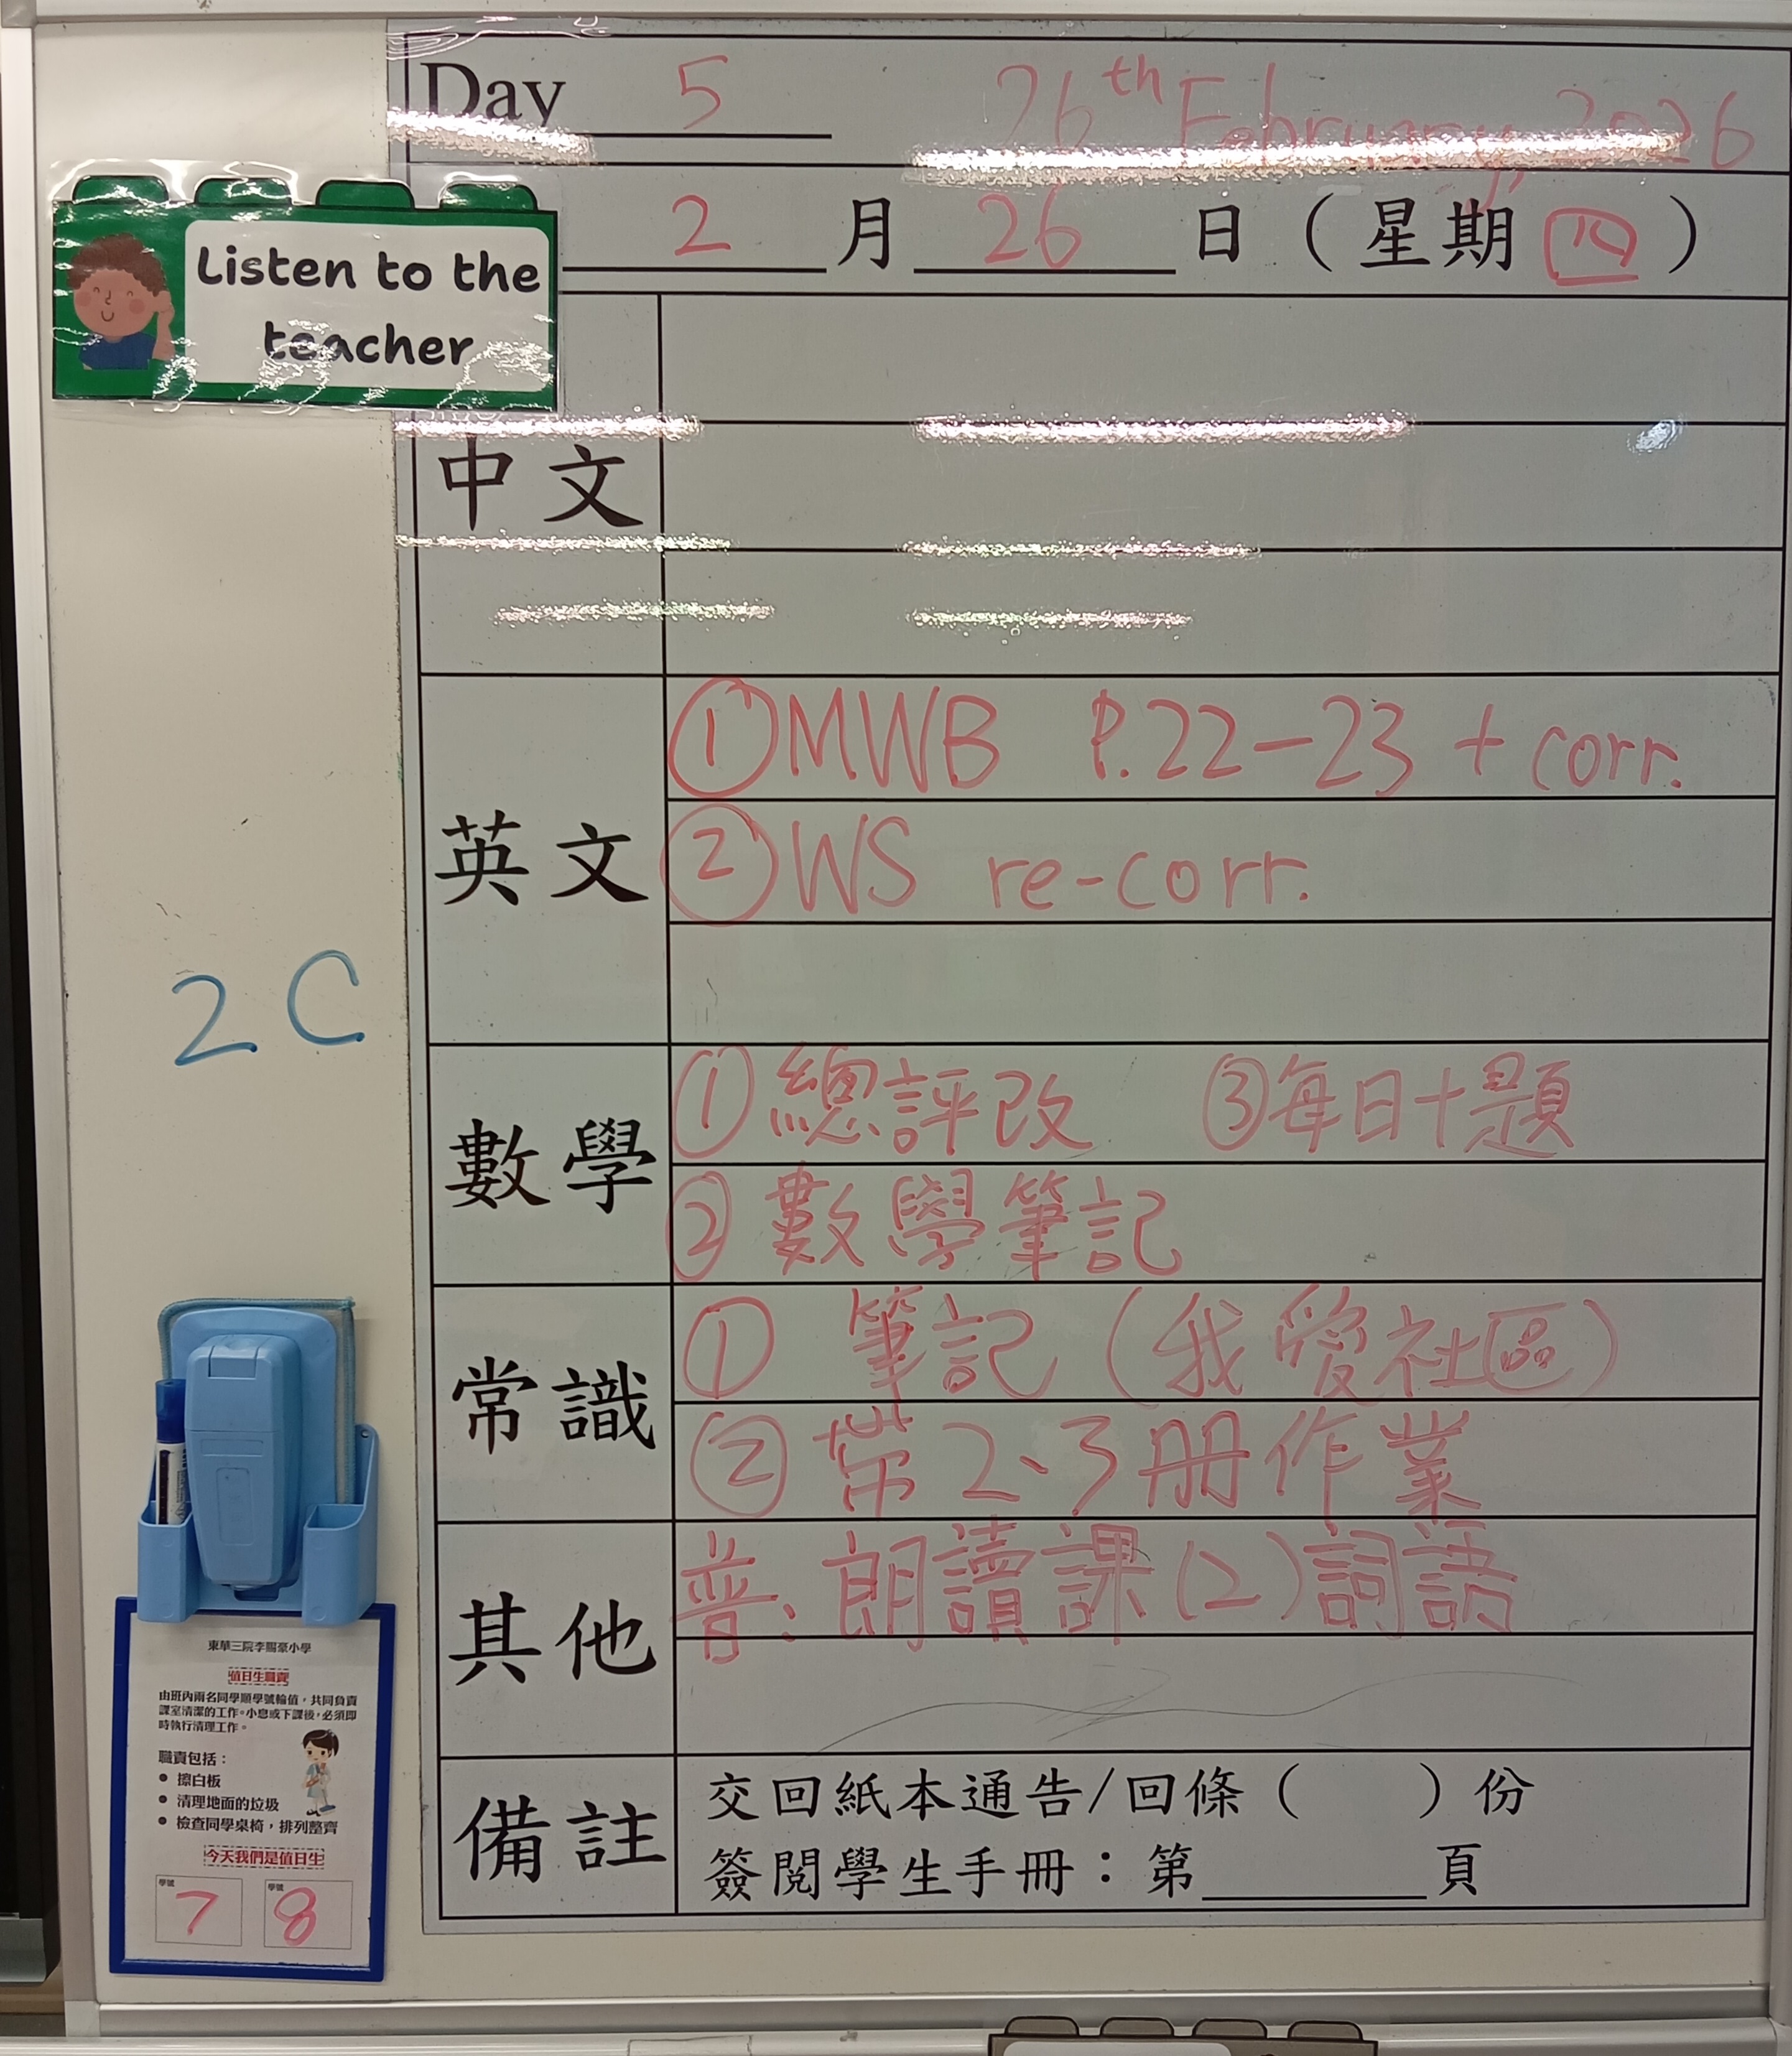 Day 5 26th February, 2026
2 月 26 日 (星期四)
Listen to the
teacher
中文
英文
①MWB P.22-23 + corr.
②WS re-corr.
2C
數學
①總評改 ③每日十題
②數學筆記
常識
① 筆記 (我愛社區)
② 帶2、3冊作業
其他
普:朗讀課(2)詞語
備註
交回紙本通告/回條( )份
簽閱學生手冊:第______頁
東華三院李賜豪小學
值日生職責
由班內兩名同學順學號輪值,共同負責
課室清潔的工作。小息或下課後,必須即
時執行清理工作。
職責包括:
● 擦白板
● 清理地面的垃圾
● 檢查同學桌椅,排列整齊
今天我們是值日生
學號 學號
7 8